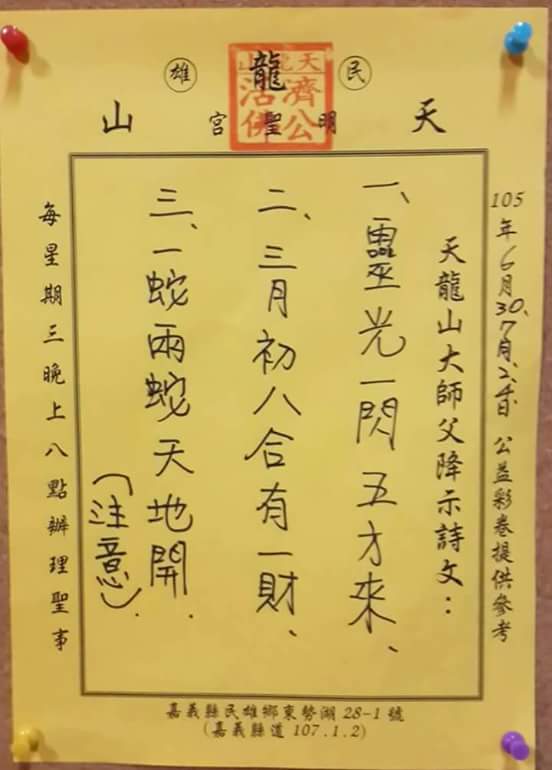 民雄
天龍山
明聖宮
濟公活佛
105年6月30、7月2、日 公益彩卷提供參考
天龍山大師父降示詩文：
一、靈光一閃五才來、
二、三月初八合有一財、
三、一蛇兩蛇天地開.
(注意).
每星期三晚上八點辦理聖事
嘉義縣民雄鄉東勢湖28-1號
(嘉義縣道107.1.2)